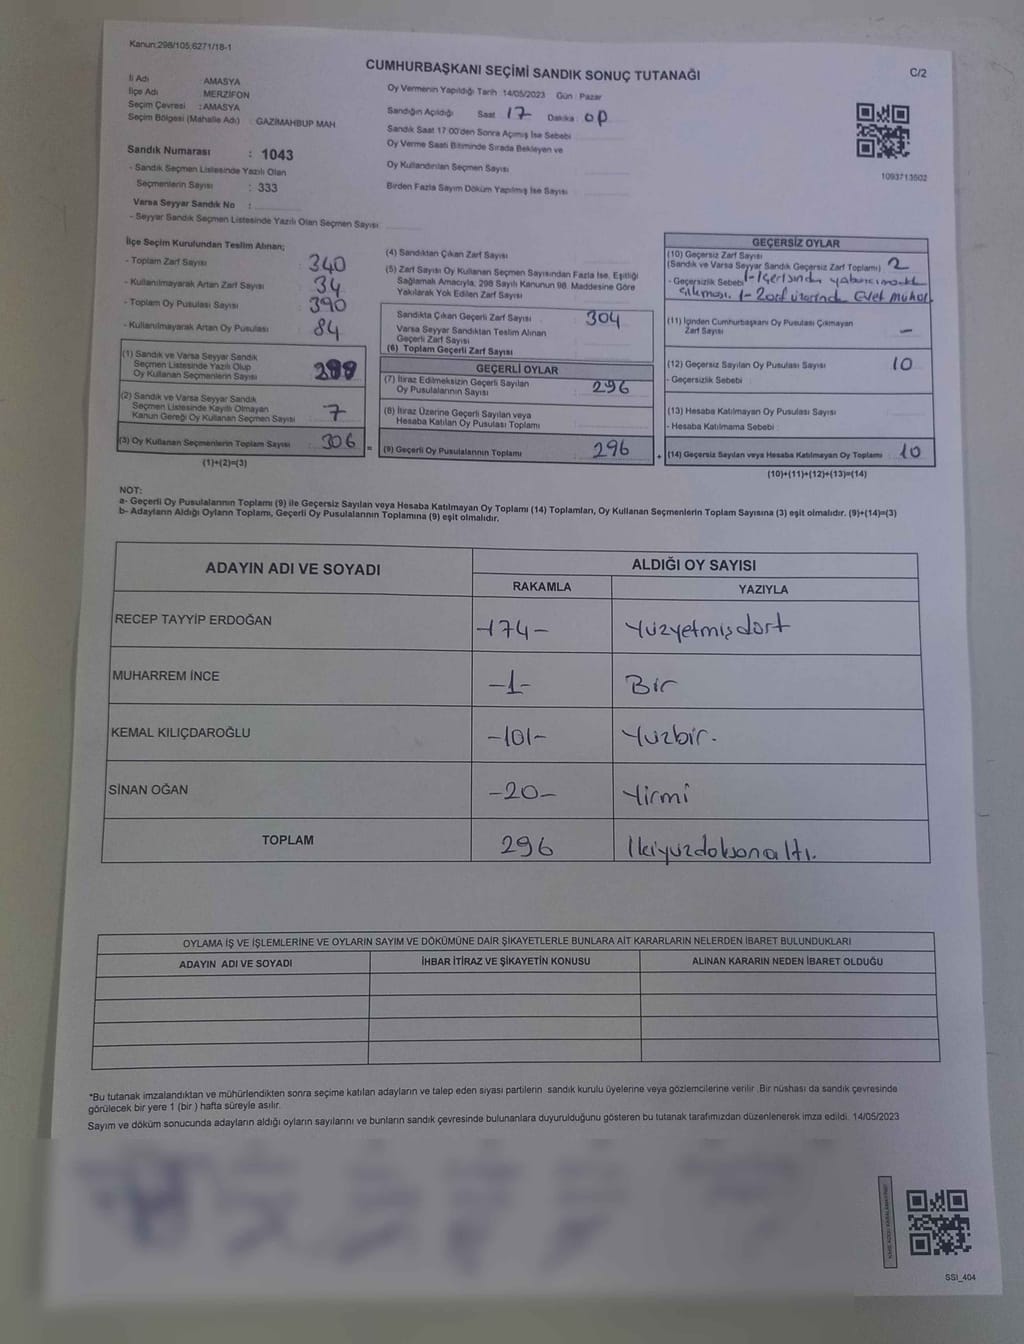 Kanun:298/105;6271/18-1
CUMHURBAŞKANI SEÇİMİ SANDIK SONUÇ TUTANAĞI
C/2
İl Adı : AMASYA
İlçe Adı : MERZİFON
Seçim Çevresi : AMASYA
Seçim Bölgesi (Mahalle Adı) : GAZİMAHBUP MAH
Sandık Numarası : 1043
- Sandık Seçmen Listesinde Yazılı Olan
Seçmenlerin Sayısı : 333
Varsa Seyyar Sandık No :
- Seyyar Sandık Seçmen Listesinde Yazılı Olan Seçmen Sayısı
Oy Vermenin Yapıldığı Tarih 14/05/2023 Gün : Pazar
Sandığın Açıldığı Saat : 17 Dakika : 00
Sandık Saat 17:00'den Sonra Açımış İse Sebebi
Oy Verme Saati Bitiminde Sırada Bekleyen ve
Oy Kullandırılan Seçmen Sayısı
Birden Fazla Sayım Döküm Yapılmış İse Sayısı
1093713502
İlçe Seçim Kurulundan Teslim Alınan;
- Toplam Zarf Sayısı : 340
- Kullanılmayarak Artan Zarf Sayısı : 34
- Toplam Oy Pusulası Sayısı : 390
- Kullanılmayarak Artan Oy Pusulası : 84
(1) Sandık ve Varsa Seyyar Sandık
Seçmen Listesinde Yazılı Olup
Oy Kullanan Seçmenlerin Sayısı : 299
(2) Sandık ve Varsa Seyyar Sandık
Seçmen Listesinde Kayıtlı Olmayan
Kanun Gereği Oy Kullanan Seçmen Sayısı : 7
(3) Oy Kullanan Seçmenlerin Toplam Sayısı : 306
(1)+(2)=(3)
(4) Sandıktan Çıkan Zarf Sayısı
(5) Zarf Sayısı Oy Kullanan Seçmen Sayısından Fazla İse, Eşitliği
Sağlamak Amacıyla, 298 Sayılı Kanunun 98. Maddesine Göre
Yakılarak Yok Edilen Zarf Sayısı
Sandıkta Çıkan Geçerli Zarf Sayısı : 304
Varsa Seyyar Sandıktan Teslim Alınan
Geçerli Zarf Sayısı
(6) Toplam Geçerli Zarf Sayısı
GEÇERLİ OYLAR
(7) İtiraz Edilmeksizin Geçerli Sayılan
Oy Pusulalarının Sayısı : 296
(8) İtiraz Üzerine Geçerli Sayılan veya
Hesaba Katılan Oy Pusulası Toplamı
= (9) Geçerli Oy Pusulalarının Toplamı : 296
GEÇERSİZ OYLAR
(10) Geçersiz Zarf Sayısı
(Sandık ve Varsa Seyyar Sandık Geçersiz Zarf Toplamı) : 2
- Geçersizlik Sebebi : 1- İçerisinden yabancı
çıkması. 1- Zarf üzerinde Evet Mühür
(11) İçinden Cumhurbaşkanı Oy Pusulası Çıkmayan
Zarf Sayısı : -
(12) Geçersiz Sayılan Oy Pusulası Sayısı : 10
- Geçersizlik Sebebi :
(13) Hesaba Katılmayan Oy Pusulası Sayısı
- Hesaba Katılmama Sebebi :
+ (14) Geçersiz Sayılan veya Hesaba Katılmayan Oy Toplamı : 10
(10)+(11)+(12)+(13)=(14)
NOT:
a- Geçerli Oy Pusulalarının Toplamı (9) ile Geçersiz Sayılan veya Hesaba Katılmayan Oy Toplamı (14) Toplamları, Oy Kullanan Seçmenlerin Toplam Sayısına (3) eşit olmalıdır. (9)+(14)=(3)
b- Adayların Aldığı Oyların Toplamı, Geçerli Oy Pusulalarının Toplamına (9) eşit olmalıdır.
ADAYIN ADI VE SOYADI
ALDIĞI OY SAYISI
RAKAMLA YAZIYLA
RECEP TAYYİP ERDOĞAN -174- Yüzyetmişdört
MUHARREM İNCE -1- Bir
KEMAL KILIÇDAROĞLU -101- Yuzbir.
SİNAN OĞAN -20- Yirmi
TOPLAM 296 İkiyuzdoksanaltı.
OYLAMA İŞ VE İŞLEMLERİNE VE OYLARIN SAYIM VE DÖKÜMÜNE DAİR ŞİKAYETLERLE BUNLARA AİT KARARLARIN NELERDEN İBARET BULUNDUKLARI
ADAYIN ADI VE SOYADI İHBAR İTİRAZ VE ŞİKAYETİN KONUSU ALINAN KARARIN NEDEN İBARET OLDUĞU
*Bu tutanak imzalandıktan ve mühürlendikten sonra seçime katılan adayların ve talep eden siyasi partilerin sandık kurulu üyelerine veya gözlemcilerine verilir .Bir nüshası da sandık çevresinde
görülecek bir yere 1 (bir ) hafta süreyle asılır.
Sayım ve döküm sonucunda adayların aldığı oyların sayılarını ve bunların sandık çevresinde bulunanlara duyurulduğunu gösteren bu tutanak tarafımızdan düzenlenerek imza edildi. 14/05/2023
SSI_404